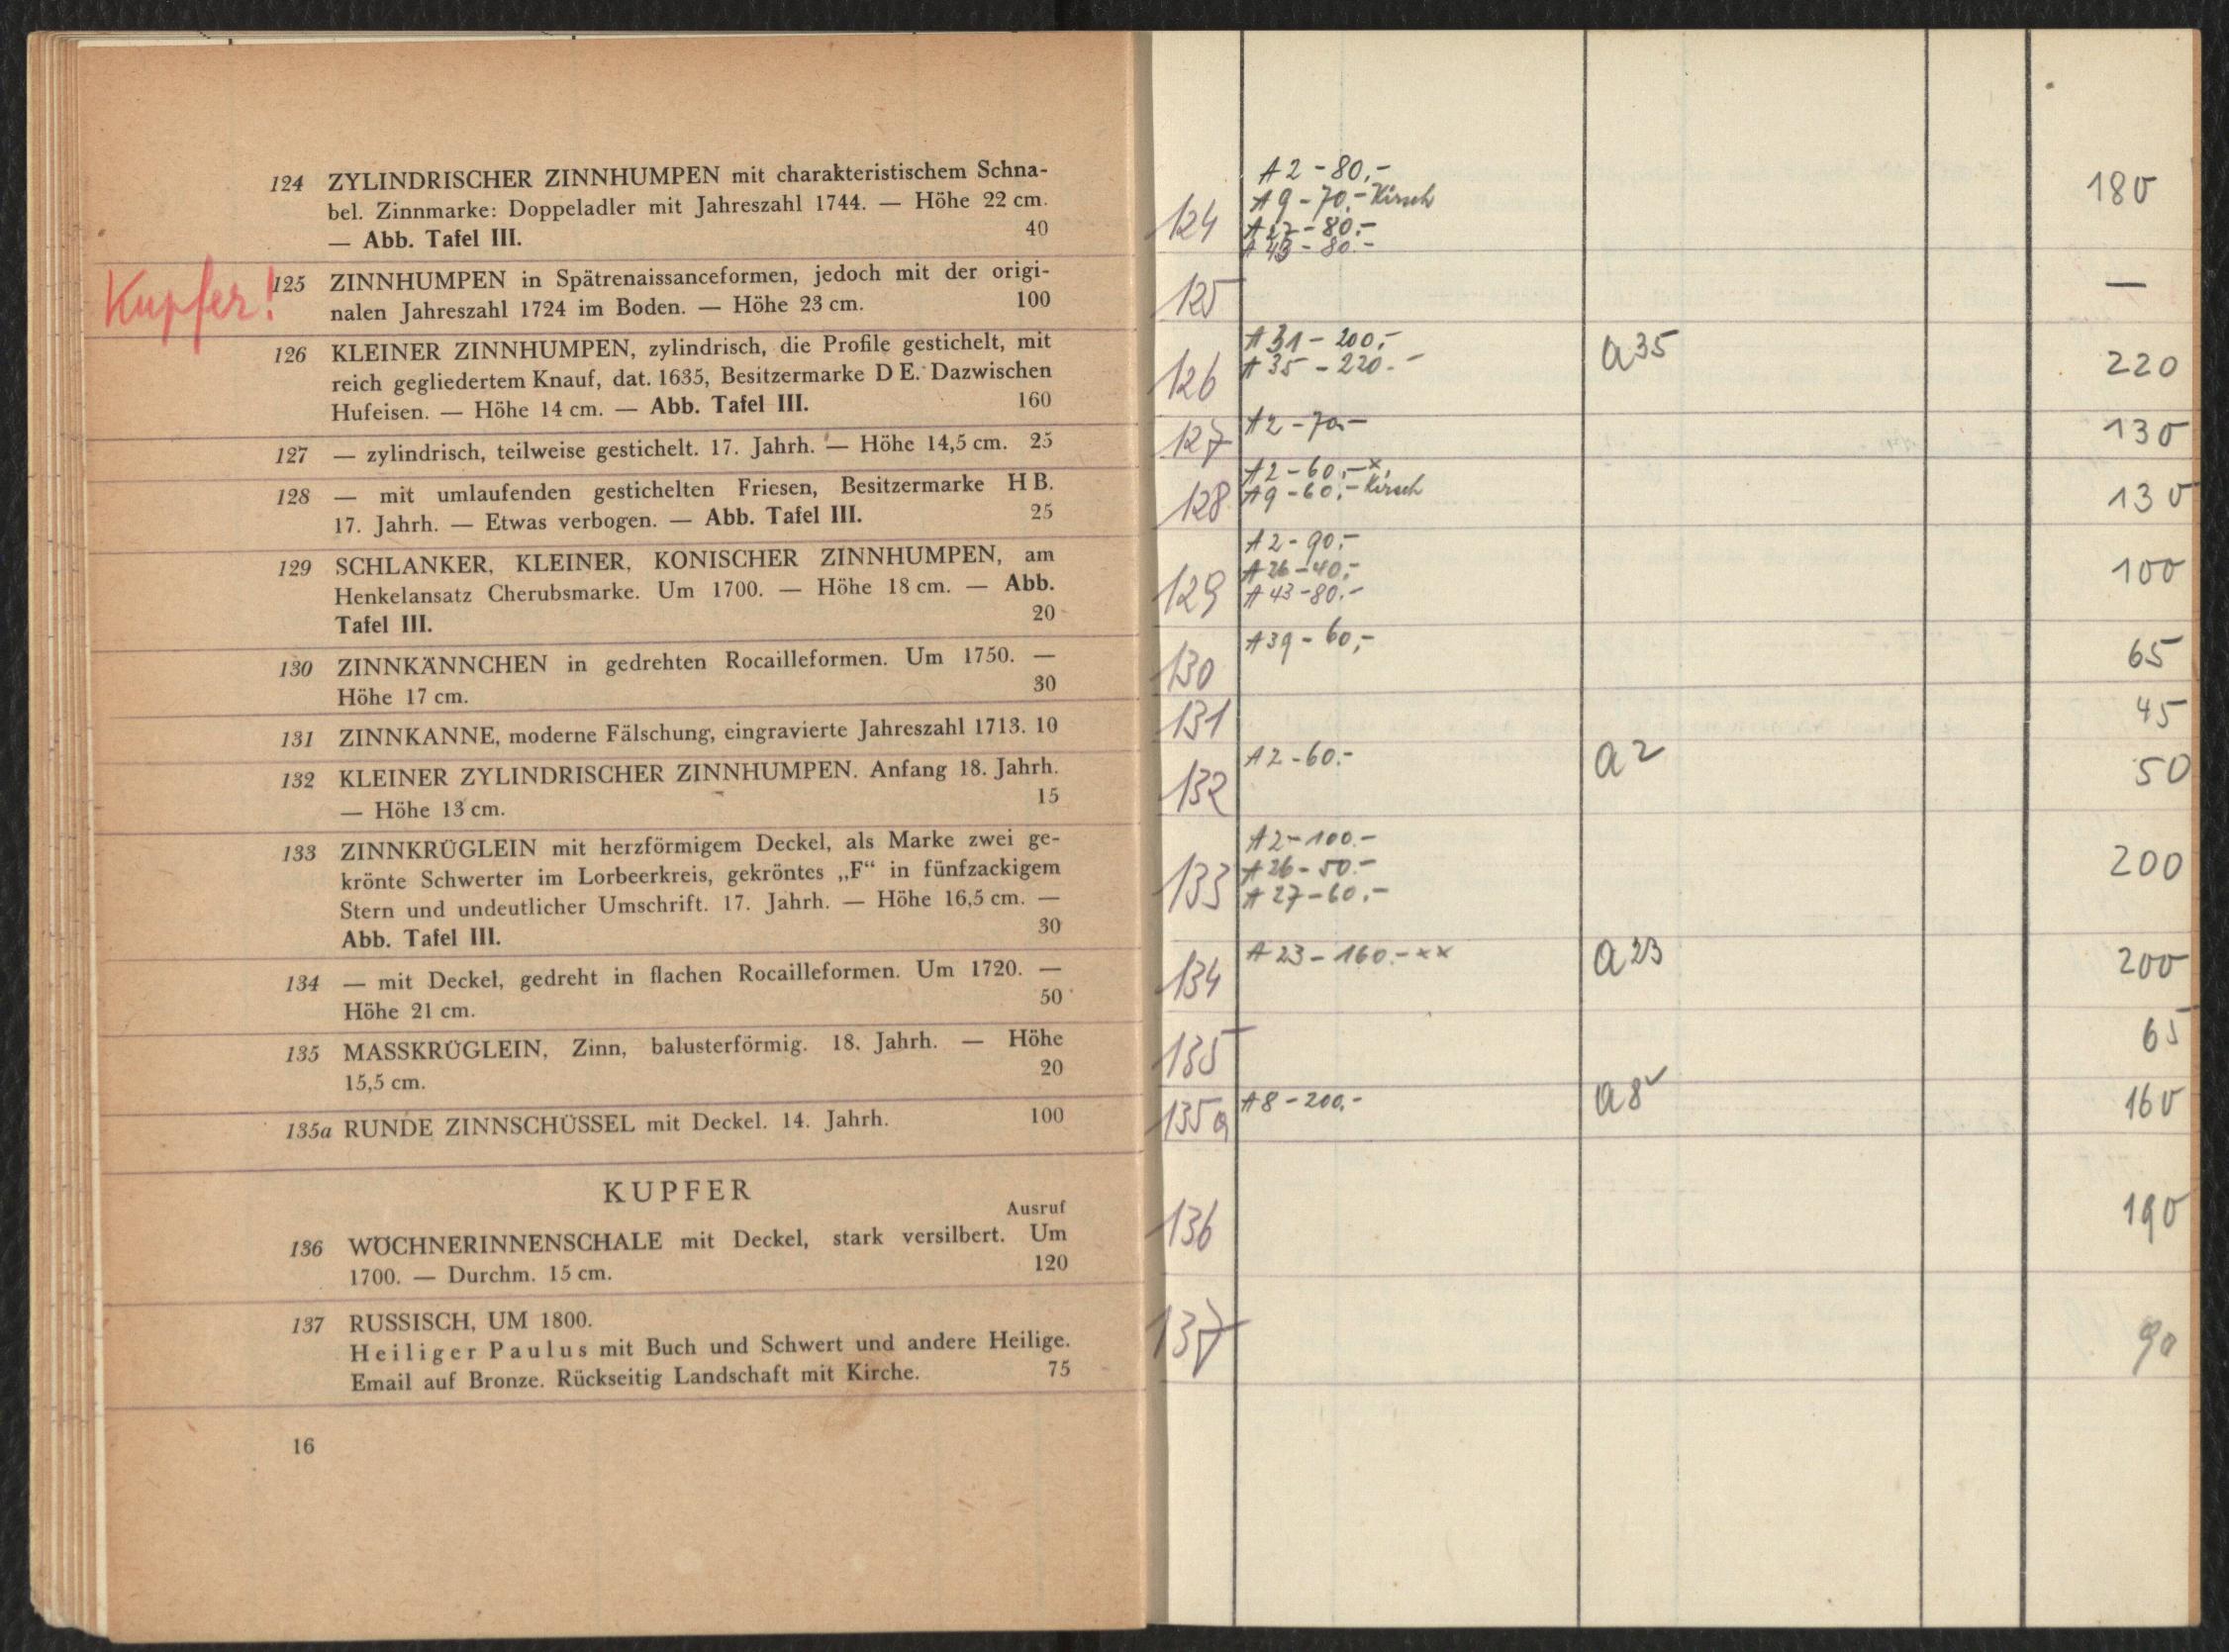 124 ZYLINDRISCHER ZINNHUMPEN mit charakteristischem Schna-
bel. Zinnmarke: Doppeladler mit Jahreszahl 1744. — Höhe 22 cm.
— Abb. Tafel III. 40
Kupfer!
125 ZINNHUMPEN in Spätrenaissanceformen, jedoch mit der origi-
nalen Jahreszahl 1724 im Boden. — Höhe 23 cm. 100
126 KLEINER ZINNHUMPEN, zylindrisch, die Profile gestichelt, mit
reich gegliedertem Knauf, dat. 1635, Besitzermarke D E. Dazwischen
Hufeisen. — Höhe 14 cm. — Abb. Tafel III. 160
127 — zylindrisch, teilweise gestichelt. 17. Jahrh. — Höhe 14,5 cm. 25
128 — mit umlaufenden gestichelten Friesen, Besitzermarke H B.
17. Jahrh. — Etwas verbogen. — Abb. Tafel III. 25
129 SCHLANKER, KLEINER, KONISCHER ZINNHUMPEN, am
Henkelansatz Cherubsmarke. Um 1700. — Höhe 18 cm. — Abb.
Tafel III. 20
130 ZINNKÄNNCHEN in gedrehten Rocailleformen. Um 1750. —
Höhe 17 cm. 30
131 ZINNKANNE, moderne Fälschung, eingravierte Jahreszahl 1713. 10
132 KLEINER ZYLINDRISCHER ZINNHUMPEN. Anfang 18. Jahrh.
— Höhe 13 cm. 15
133 ZINNKRÜGLEIN mit herzförmigem Deckel, als Marke zwei ge-
krönte Schwerter im Lorbeerkreis, gekröntes „F“ in fünfzackigem
Stern und undeutlicher Umschrift. 17. Jahrh. — Höhe 16,5 cm. —
Abb. Tafel III. 30
134 — mit Deckel, gedreht in flachen Rocailleformen. Um 1720. —
Höhe 21 cm. 50
135 MASSKRÜGLEIN, Zinn, balusterförmig. 18. Jahrh. — Höhe
15,5 cm. 20
135a RUNDE ZINNSCHÜSSEL mit Deckel. 14. Jahrh. 100
KUPFER
Ausruf
136 WÖCHNERINNENSCHALE mit Deckel, stark versilbert. Um
1700. — Durchm. 15 cm. 120
137 RUSSISCH, UM 1800.
Heiliger Paulus mit Buch und Schwert und andere Heilige.
Email auf Bronze. Rückseitig Landschaft mit Kirche. 75
16
A 2 - 80,-
A 9 - 70,- Kirsch
124 A 27 - 80.- 180
A 43 - 80.-
125 —
A 31 - 200,-
126 A 35 - 220.- a 35 220
127 A 2 - 70.- 130
A 2 - 60,- x
128 A 9 - 60,- Kirsch 130
A 2 - 90,-
A 26 - 40,-
129 A 43 - 80.- 100
130 A 39 - 60,- 65
131 45
132 A 2 - 60.- a 2 50
A 2 - 100.-
133 A 26 - 50.- 200
A 27 - 60.-
134 A 23 - 160.- xx a 23 200
135 65
135a A 8 - 200,- a 8 160
136 190
137 90